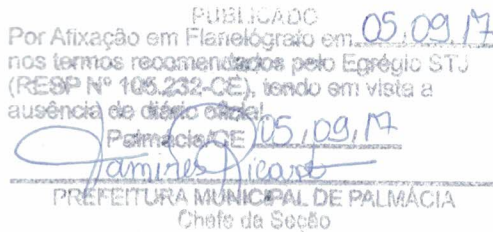 PUBLICADO
Por Afixação em Flanelógrafo em 05,09,17
nos termos recomendados pelo Egrégio STJ
(RESP Nº 105.232-CE), tendo em vista a
ausência de diário oficial.
Palmácia/CE 05,09,17
Tamires Ricart
PREFEITURA MUNICIPAL DE PALMÁCIA
Chefe da Seção